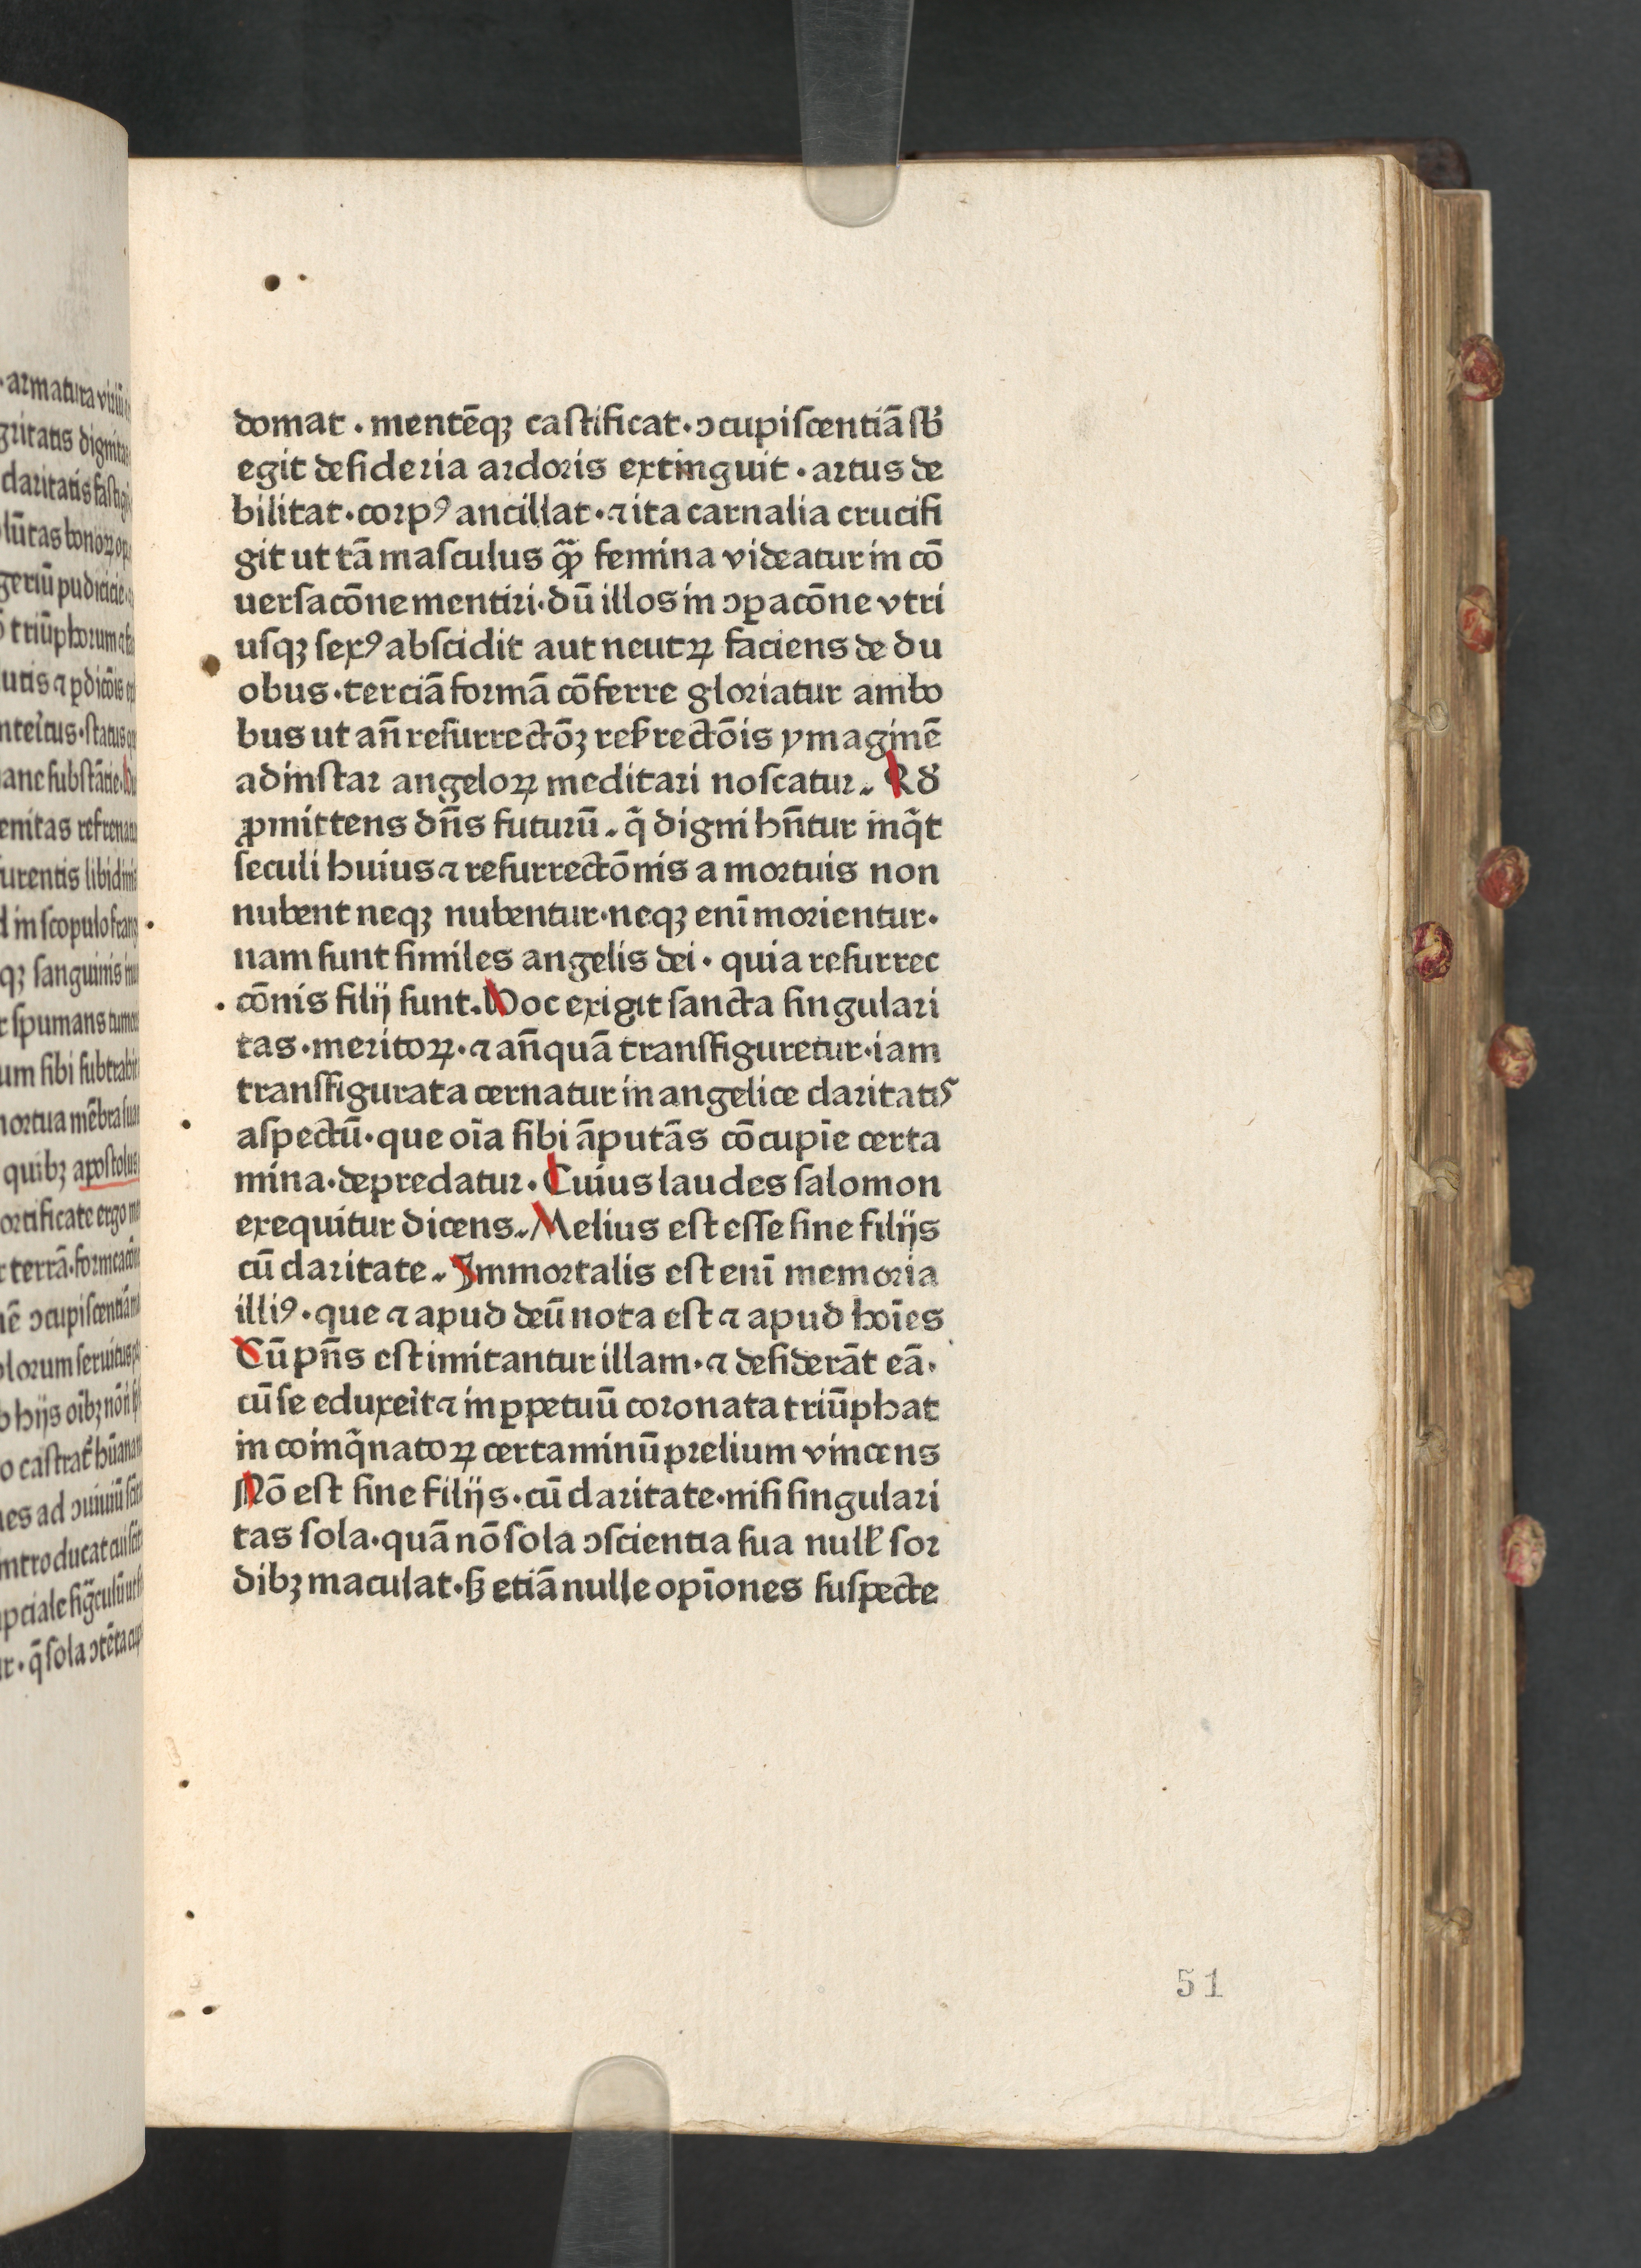 domat · mentēqꝫ caſtificat · ɔcupiſcentiā ſb̄
egit deſideria ardoris extinguit · artus de
bilitat · corpꝰ ancillat · ⁊ ita carnalia crucifi
git ut tā maſculus qꝫ̄ femina videatur in cō
uerſacōne mentiri · dū illos in ɔꝑacōne vtri
uſqꝫ ſexꝰ abſcidit aut neutꝝ faciens de du
obus · terciā formā cōferre gloriatur ambo
bus ut an̄ reſurrectōꝫ reſ̄rectōis ymaginē
ad inſtar angeloꝝ meditari noſcatur. Rd̄
ꝓmittens dn̄s futurū. q̄ digni hn̄tur inq̄t
ſeculi huius ⁊ reſurrectōnis a mortuis non
nubent neqꝫ nubentur · neqꝫ enī morientur ·
nam ſunt ſimiles angelis dei · quia reſurrec
cōnis filij ſunt. Hoc exigit ſancta ſingulari
tas · meritoꝝ · ⁊ an̄quā tranſfiguretur · iam
tranſfigurata cernatur in angelice claritatis
aſpectū · que oīa ſibi āputās cōcupīe certa
mina · depredatur · Cuius laudes ſalomon
exequitur dicens. Melius eſt eſſe ſine filijs
cū claritate. Immortalis eſt enī memoria
illiꝰ · que ⁊ apud deū nota eſt ⁊ apud hoīes
Cū pn̄s eſt imitantur illam · ⁊ deſiderāt eā ·
cū ſe eduxeīt ⁊ in ꝑpetuū coronata triūphat
in coinq̄natoꝝ certaminū prelium vincens
Nō eſt ſine filijs · cū claritate · niſi ſingulari
tas ſola · quā nō ſola ɔſcientia ſua nullꝭ ſor
dibꝫ maculat · ſꝫ etiā nulle opīones ſuſpecte
51